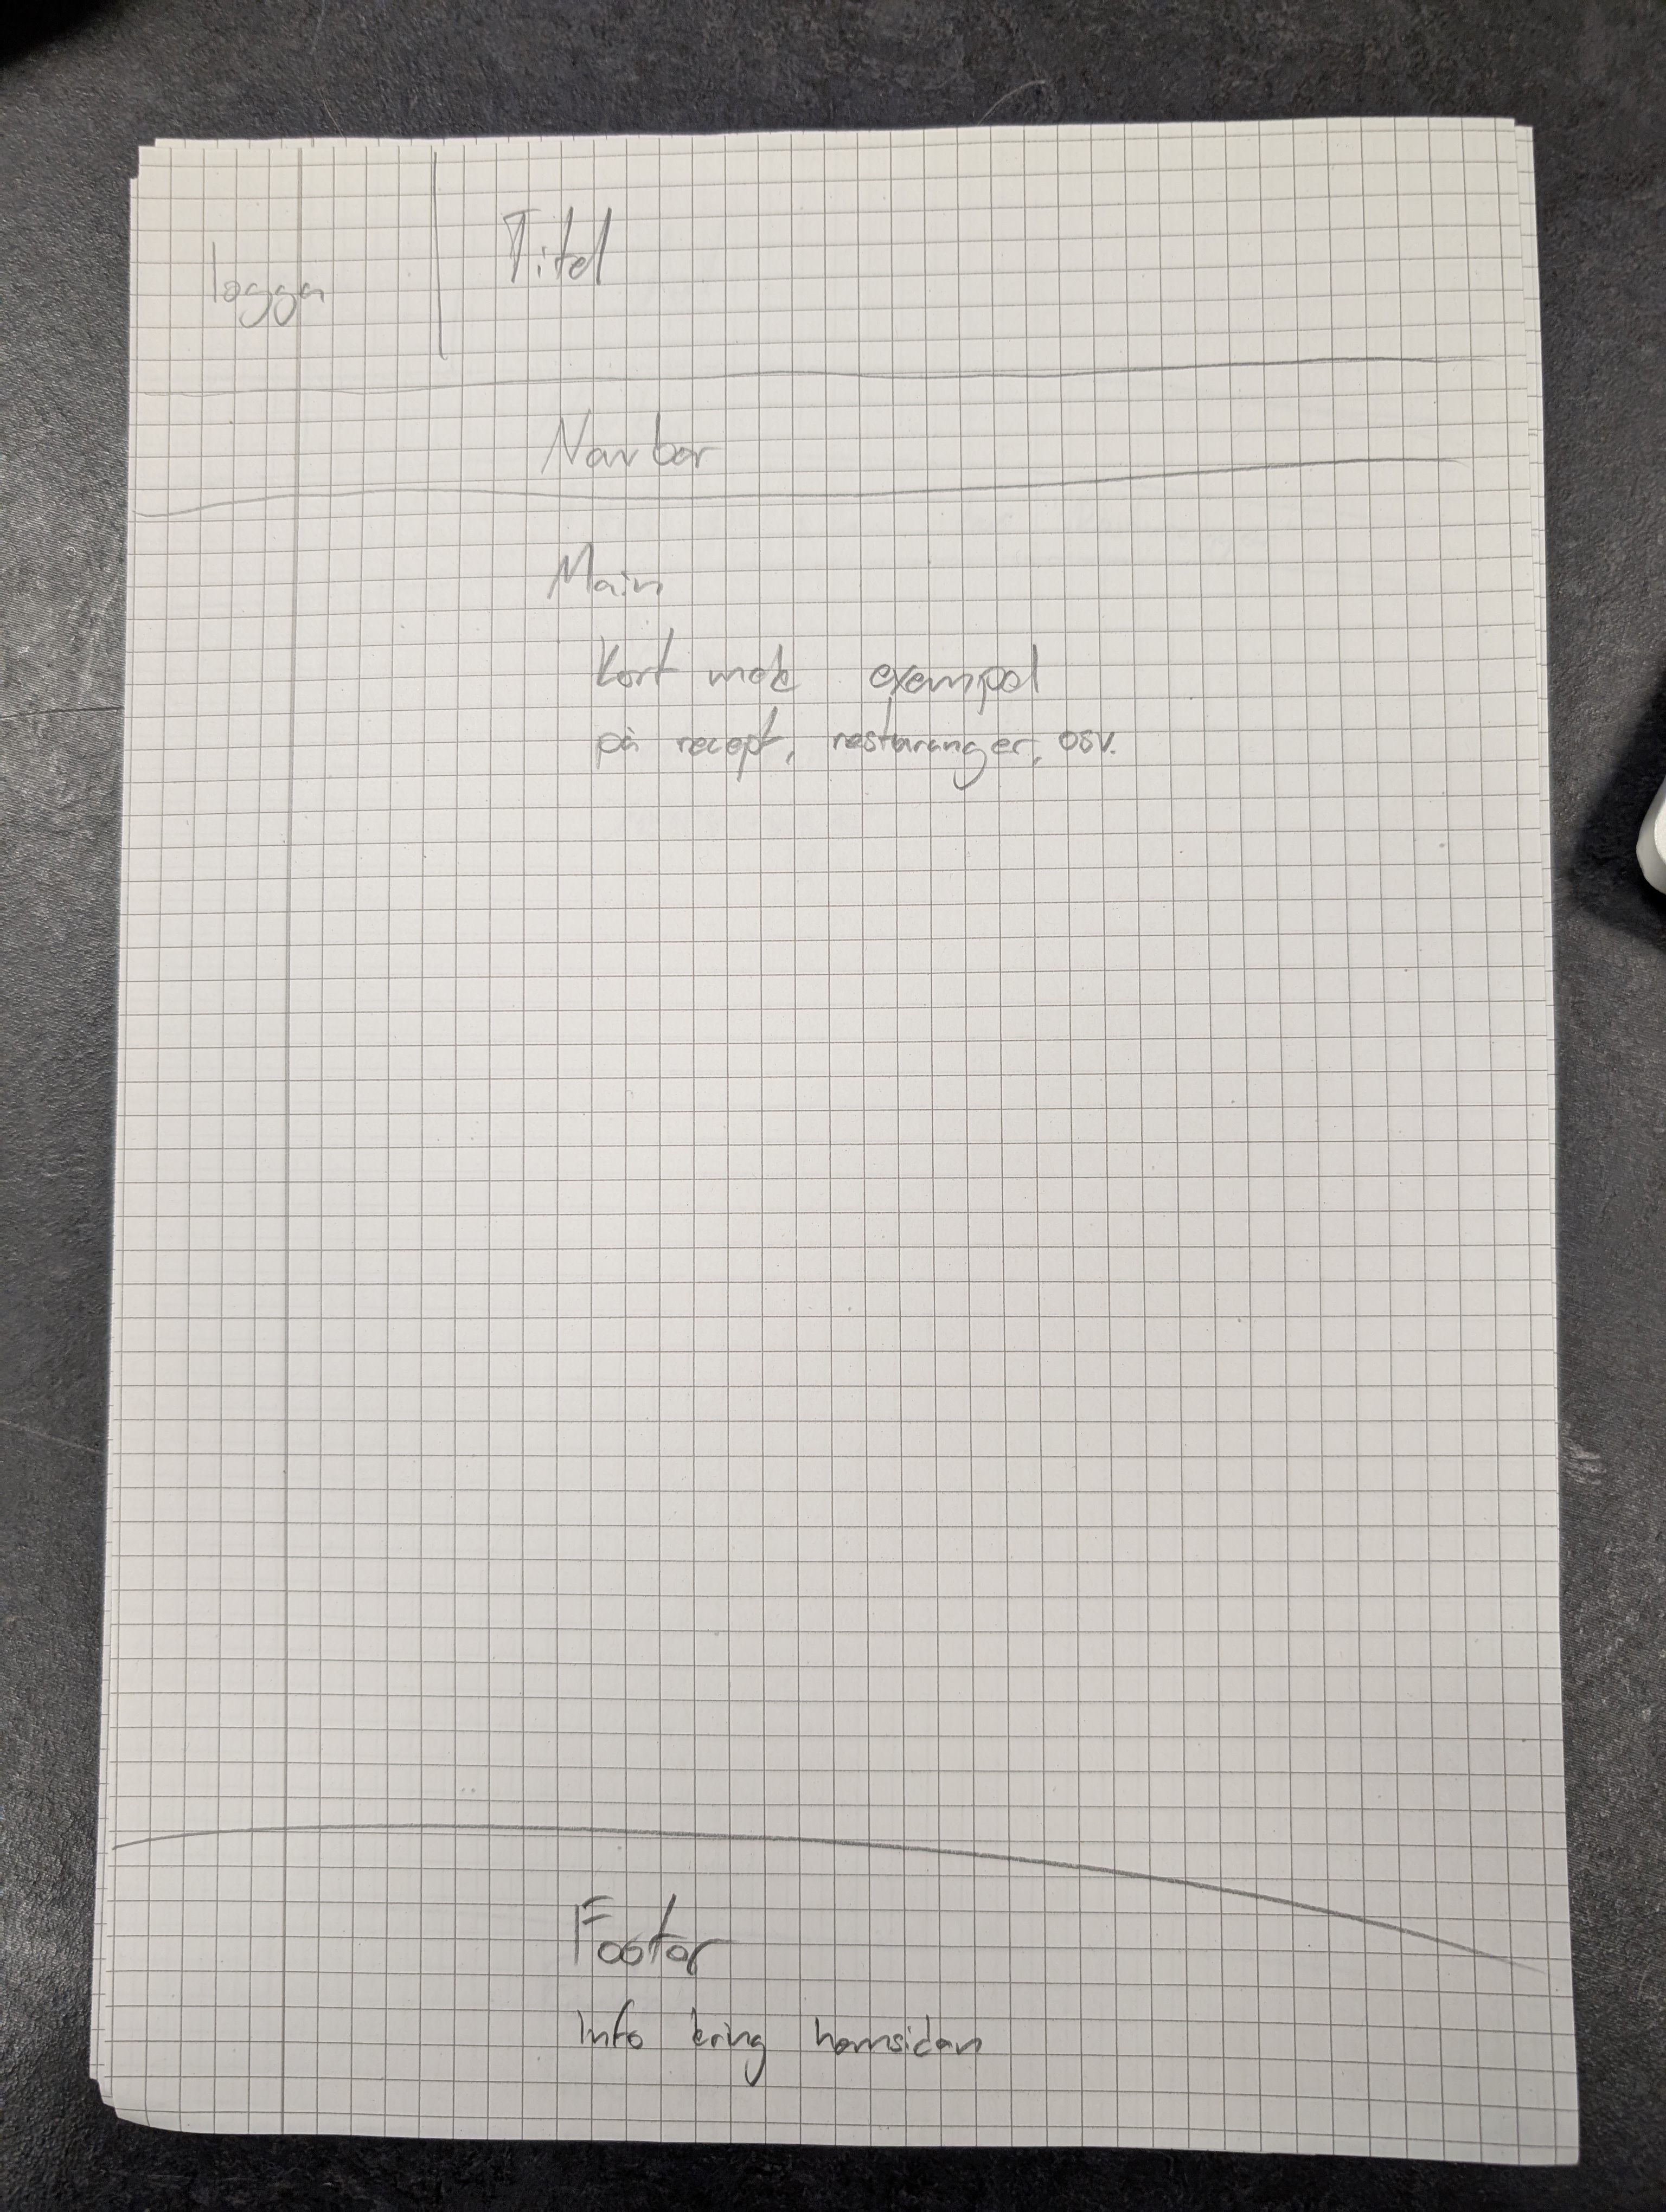 Titel
logga
Navbar
Main
kort med exempel
på recept, restauranger, osv.
Footer
Info kring hemsidan